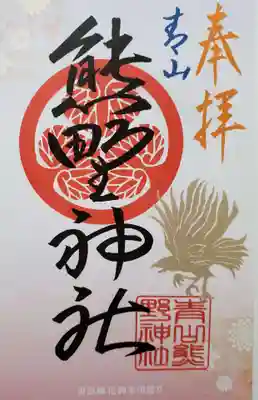 奉拝
青山
熊野神社
青山熊
野神社